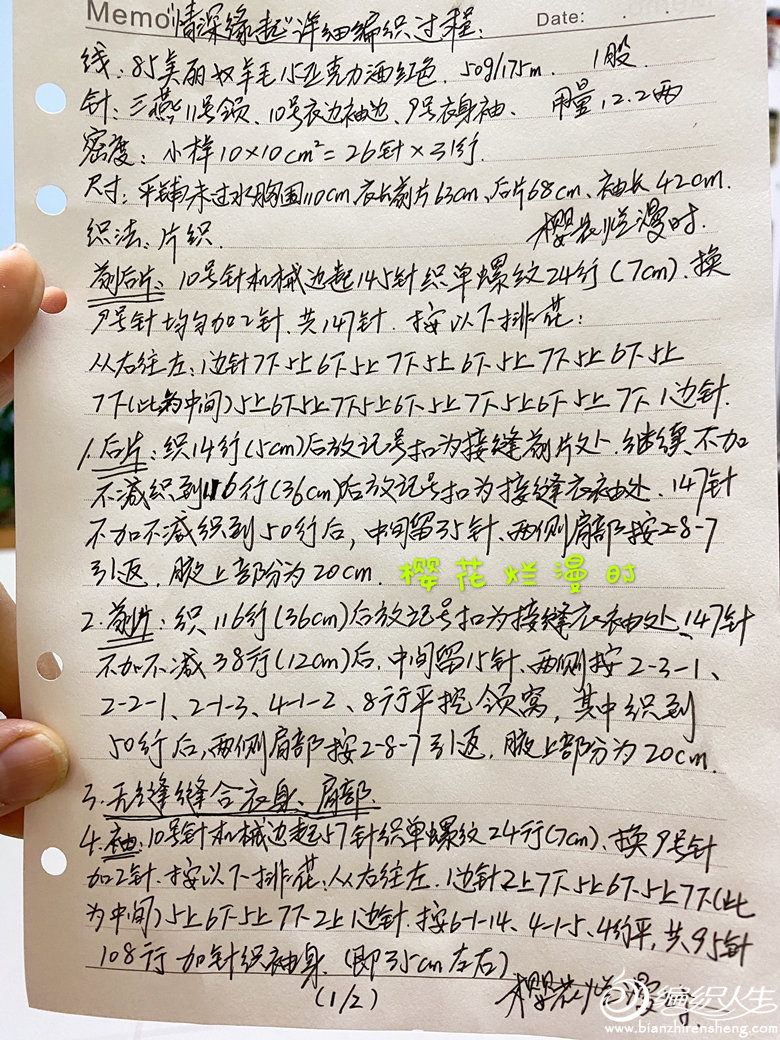 Memo "情深缘起"详细编织过程: Date:
线:85美丽奴羊毛15亚克力酒红色. 50g/175m. 1股
针:三燕11号领、10号衣边袖边、9号衣身袖、 用量:12.2两
密度:小样10×10cm²=26针×31行.
尺寸:平铺未过水胸围110cm、衣长前片63cm、后片68cm、袖长42cm.
织法:片织. 樱花烂漫时.
前后片:10号针机械边起145针织单螺纹24行(7cm).换
9号针均匀加2针.共147针.按以下排花:
从右往左:1边针7下5上6下5上7下5上6下5上7下5上6下5上
7下(此为中间)5上6下5上7下5上6下5上7下5上6下5上7下1边针.
1.后片:织14行(5cm)后放记号扣为接缝前片处.继续不加
不减织到116行(36cm)后放记号扣为接缝衣袖处.147针
不加不减织到50行后,中间留35针、两侧肩部按2-8-7
引返.腋上部分为20cm. 樱花烂漫时
2.前片:织116行(36cm)后放记号扣为接缝衣袖处、147针
不加不减38行(12cm)后,中间留15针、两侧按2-3-1、
2-2-1、2-1-3、4-1-2、8行平挖领窝,其中织到
50行后,两侧肩部按2-8-7引返.腋上部分为20cm.
3.无缝缝合衣身、肩部.
4.袖:10号针机械边起57针织单螺纹24行(7cm)、换9号针
加2针.按以下排花:从右往左.1边针2上7下5上6下5上7下(此
为中间)5上6下5上7下2上1边针.按6-1-14、4-1-5、4行平,共95针
108行加针织袖身.(即35cm左右)
(1/2) 樱花烂漫时
编织人生
www.bianzhirensheng.com